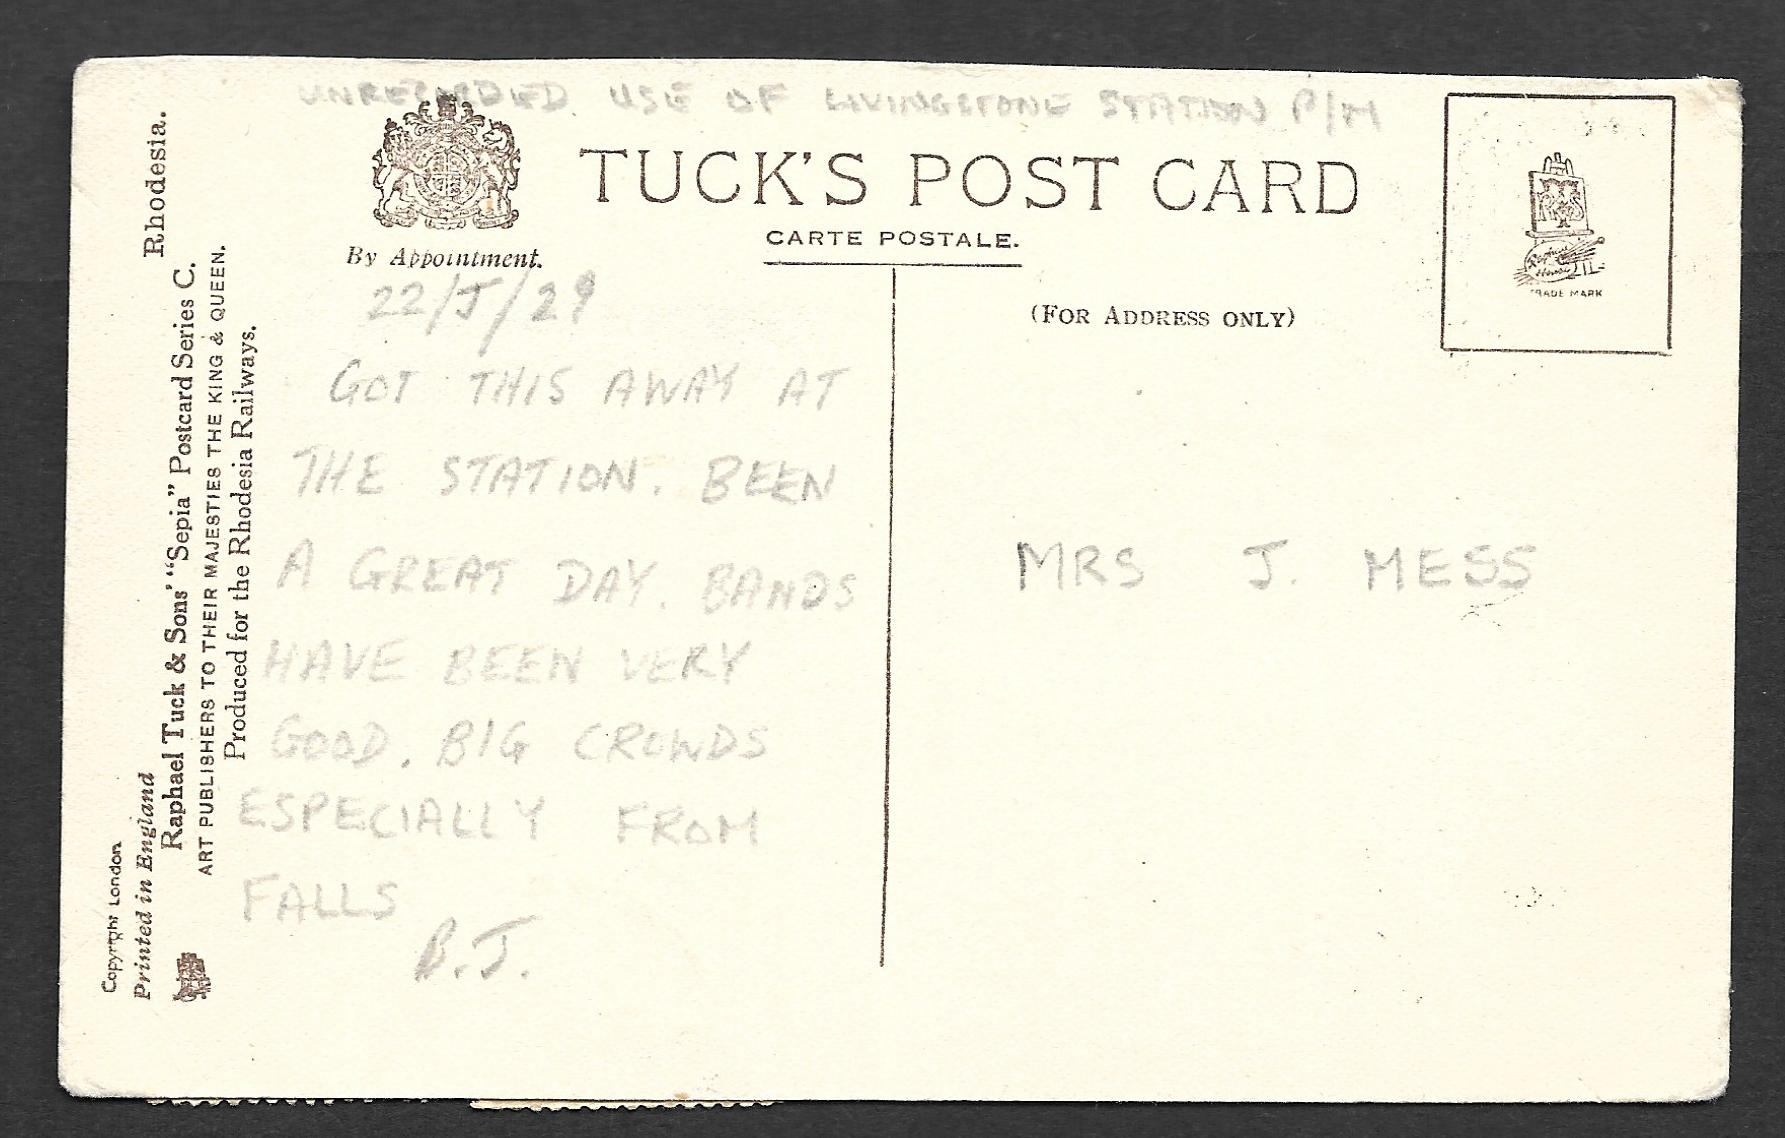 UNRECORDED USE OF LIVINGSTONE STATION P/M
TUCK'S POST CARD
CARTE POSTALE.
By Appointment.
(FOR ADDRESS ONLY)
TRADE MARK
Rhodesia.
Raphael Tuck & Sons' "Sepia" Postcard Series C.
ART PUBLISHERS TO THEIR MAJESTIES THE KING & QUEEN.
Produced for the Rhodesia Railways.
Copyright London
Printed in England
22/J/29
GOT THIS AWAY AT
THE STATION. BEEN
A GREAT DAY. BANDS
HAVE BEEN VERY
GOOD. BIG CROWDS
ESPECIALLY FROM
FALLS
B.J.
MRS J. MESS